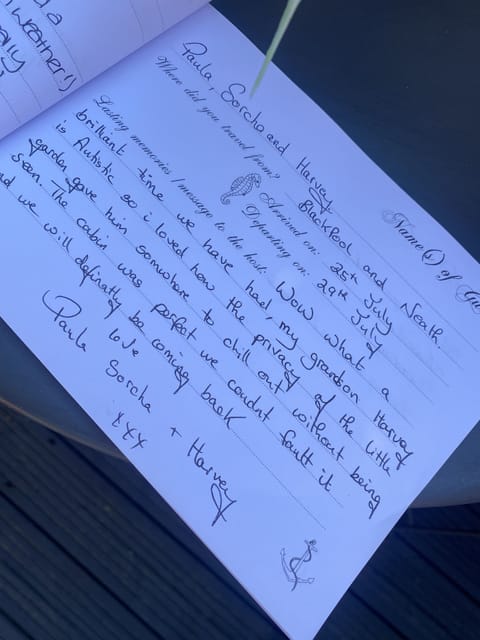 d a
weather!)
ally
Name(s) of Gu
Paula, Sorcha and Harvey
Where did you travel from? Blackpool and Neath.
Arrived on: 25th July
Departing on: 29th July
Lasting memories / message to the host: Wow what a
brilliant time we have had, my grandson Harvey
is Autistic so i loved how the privacy of the little
garden gave him somwhere to chill out without being
seen. The cabin was perfect we coudnt fault it
nd we will definatly be coming back
love
Paula Sorcha + Harvey
xxx